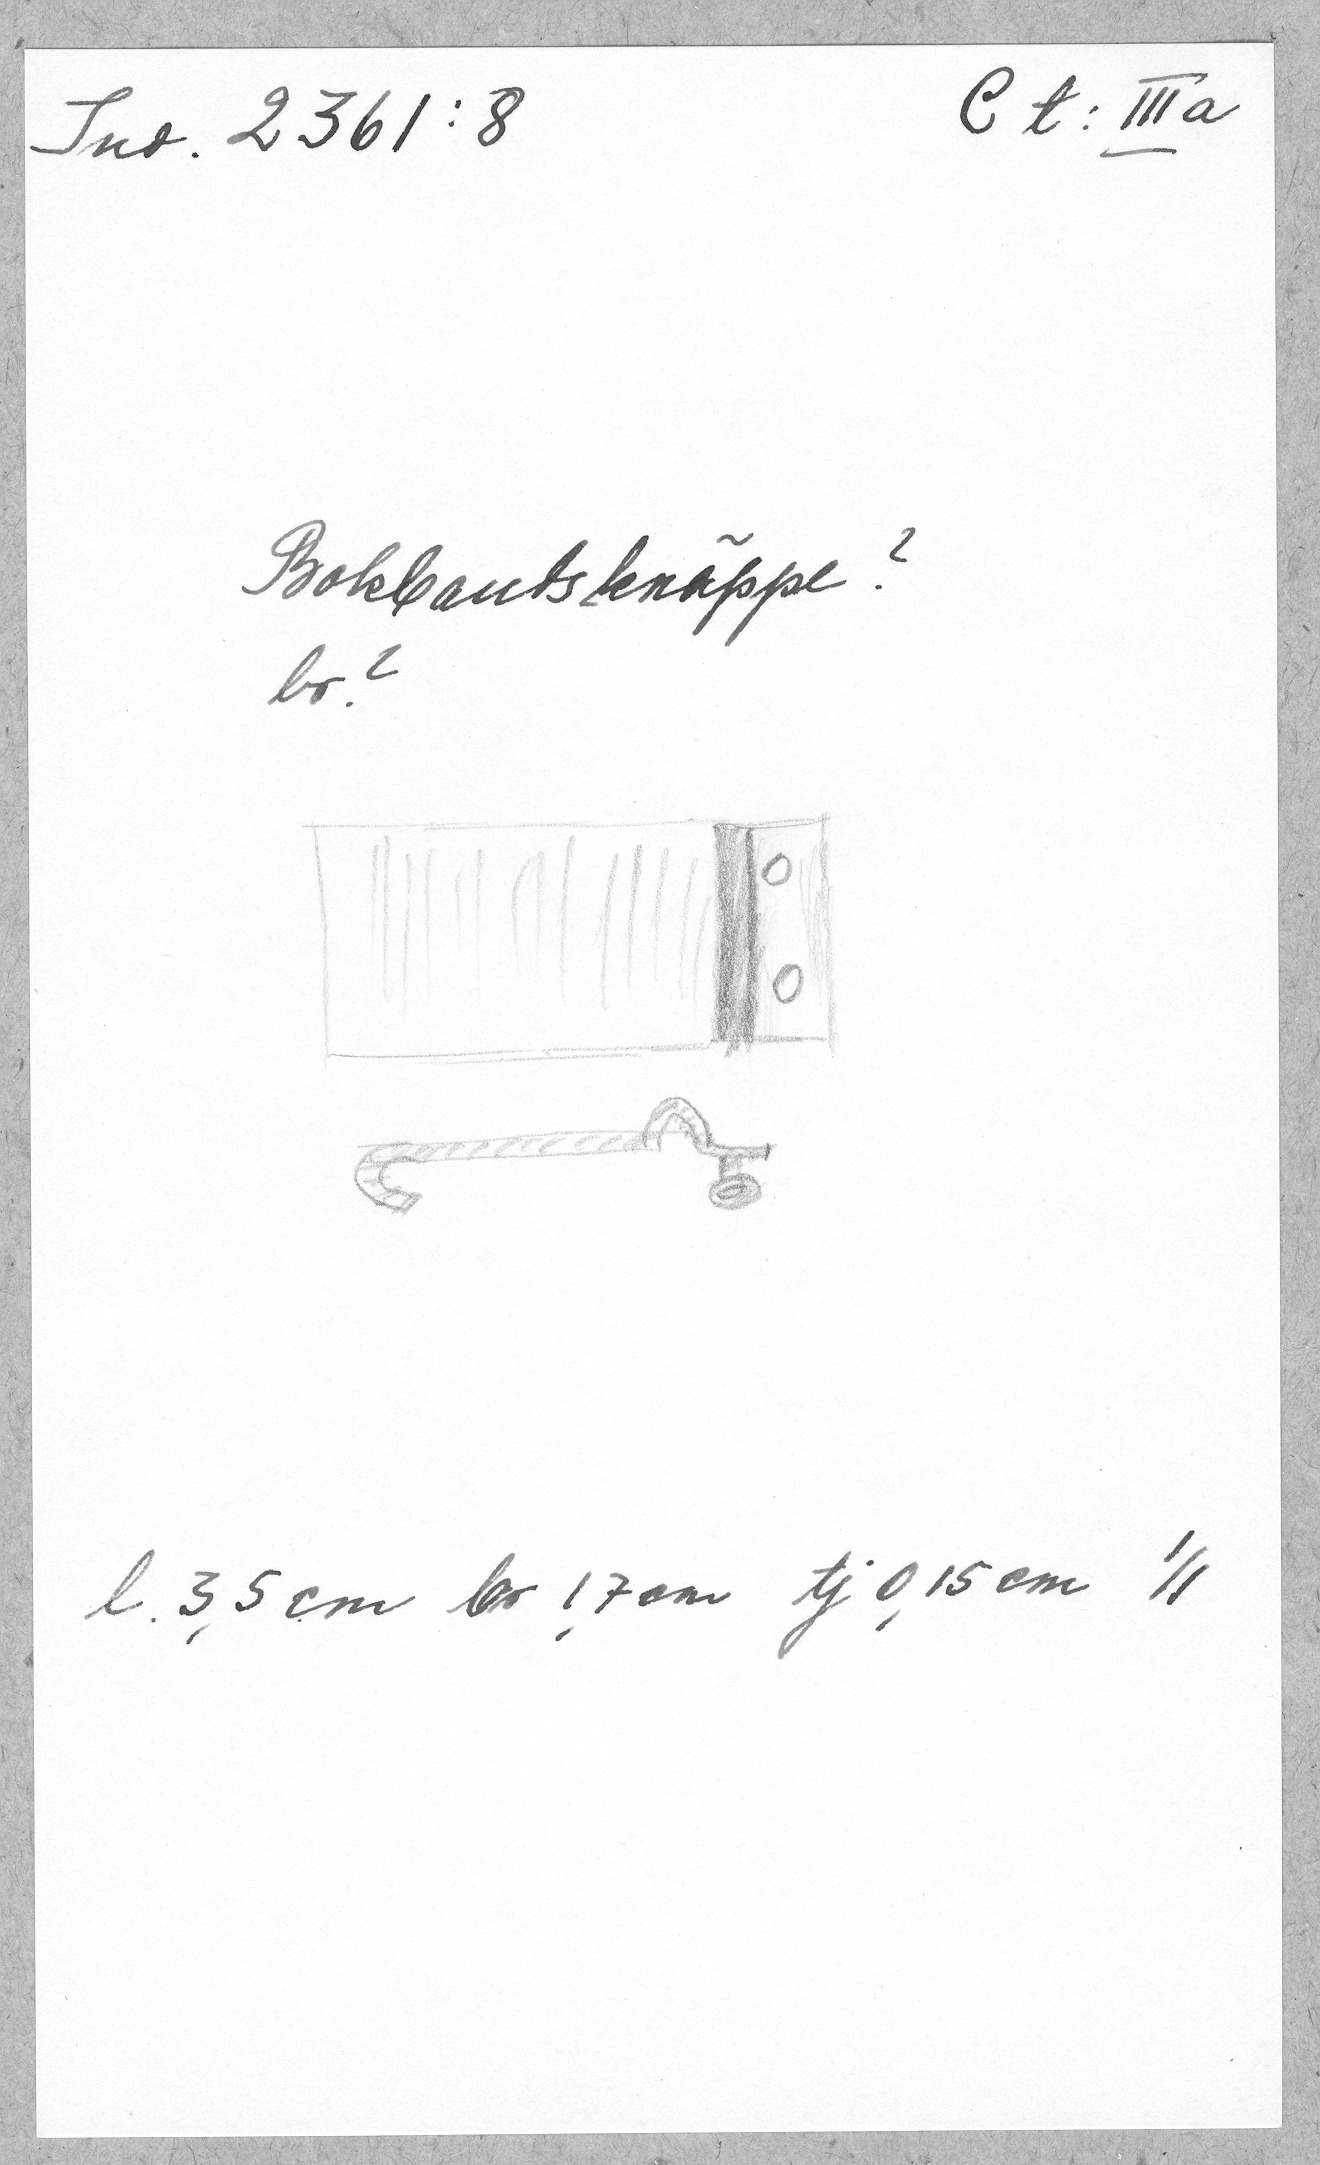 Inv. 2361:8
C t: III a
Bokbandsknäppe?
br.?
l. 3,5 cm br 1,7 cm tj 0,15 cm 1/1